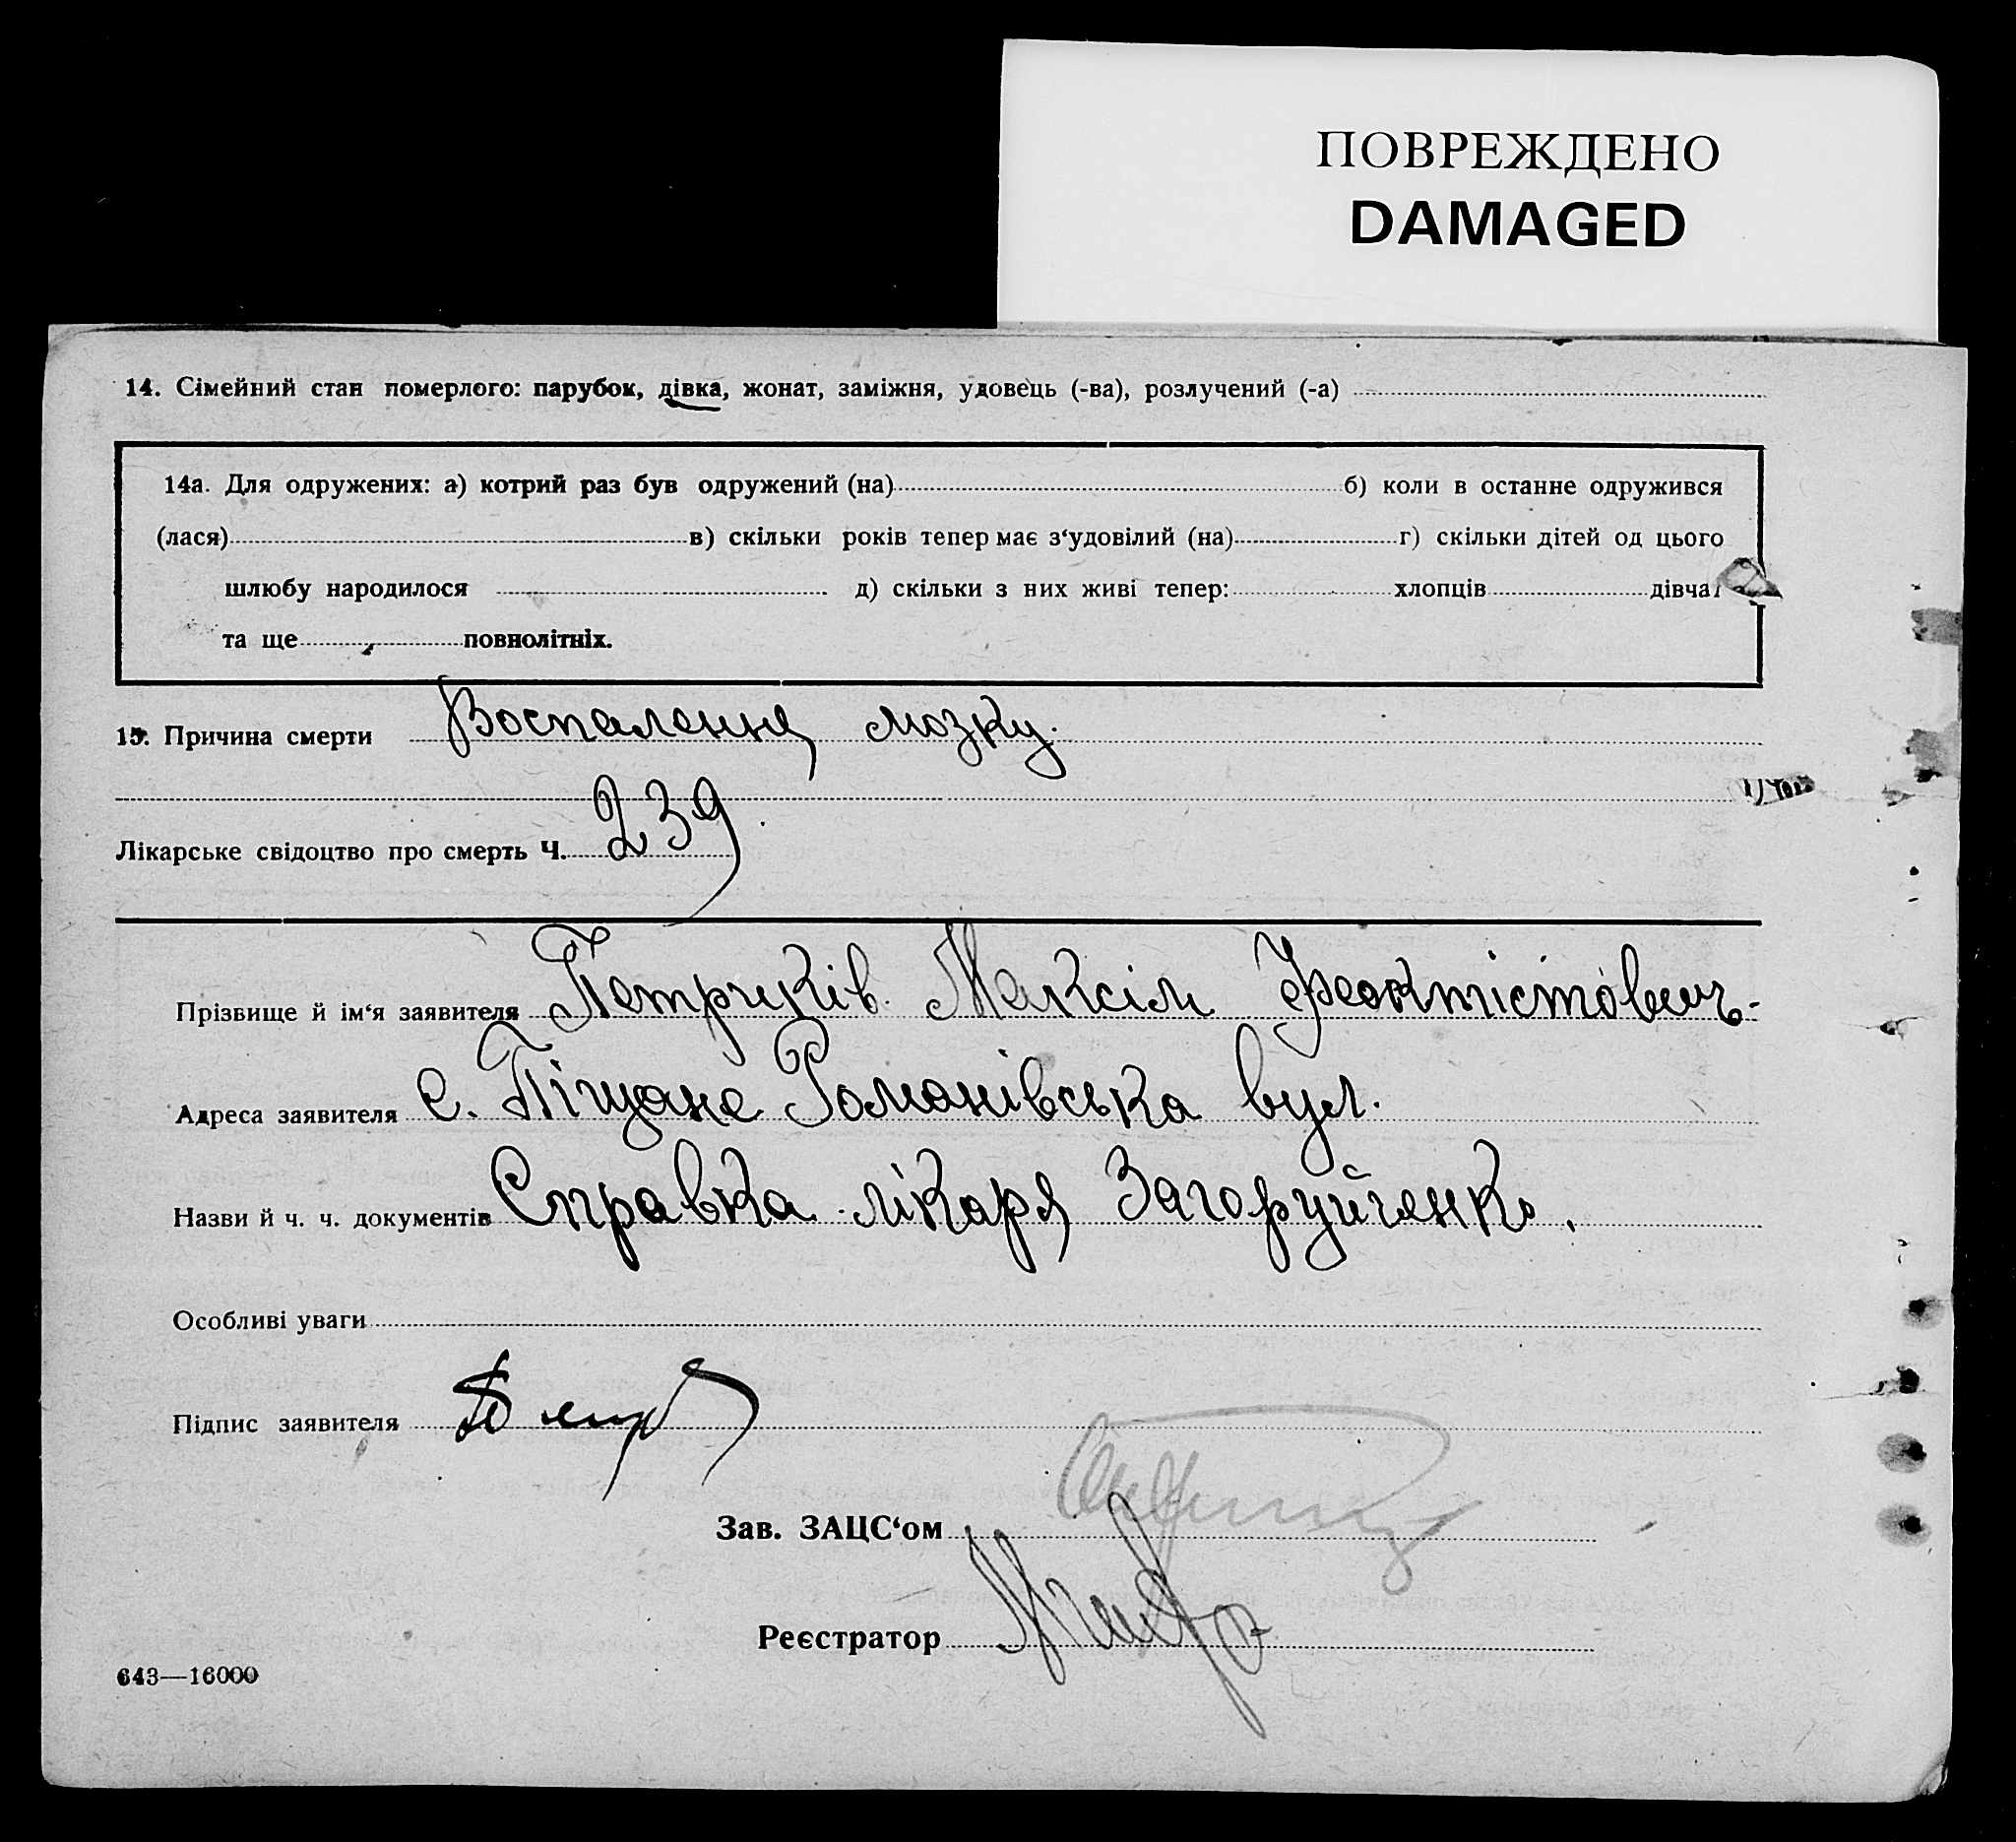 ПОВРЕЖДЕНО
DAMAGED
14. Сімейний стан померлого: парубок, дівка, жонат, заміжня, удовець (-ва), розлучений (-а)
14а. Для одружених: а) котрий раз був одружений (на) б) коли в останнє одружився
(лася) в) скільки років тепер має з‘удовілий (на) г) скільки дітей од цього
шлюбу народилося д) скільки з них живі тепер: хлопців дівчат
та ще повнолітніх.
15. Причина смерти Воспалення мозку.
Лікарське свідоцтво про смерть Ч. 239
Прізвище й ім‘я заявителя Петриків Максім Феоктістович
Адреса заявителя с. Піщане Романівська вул.
Назви й ч. ч. документів Справка лікаря Загоруйченко.
Особливі уваги
Підпис заявителя
Зав. ЗАЦС‘ом
Реєстратор
643—16000